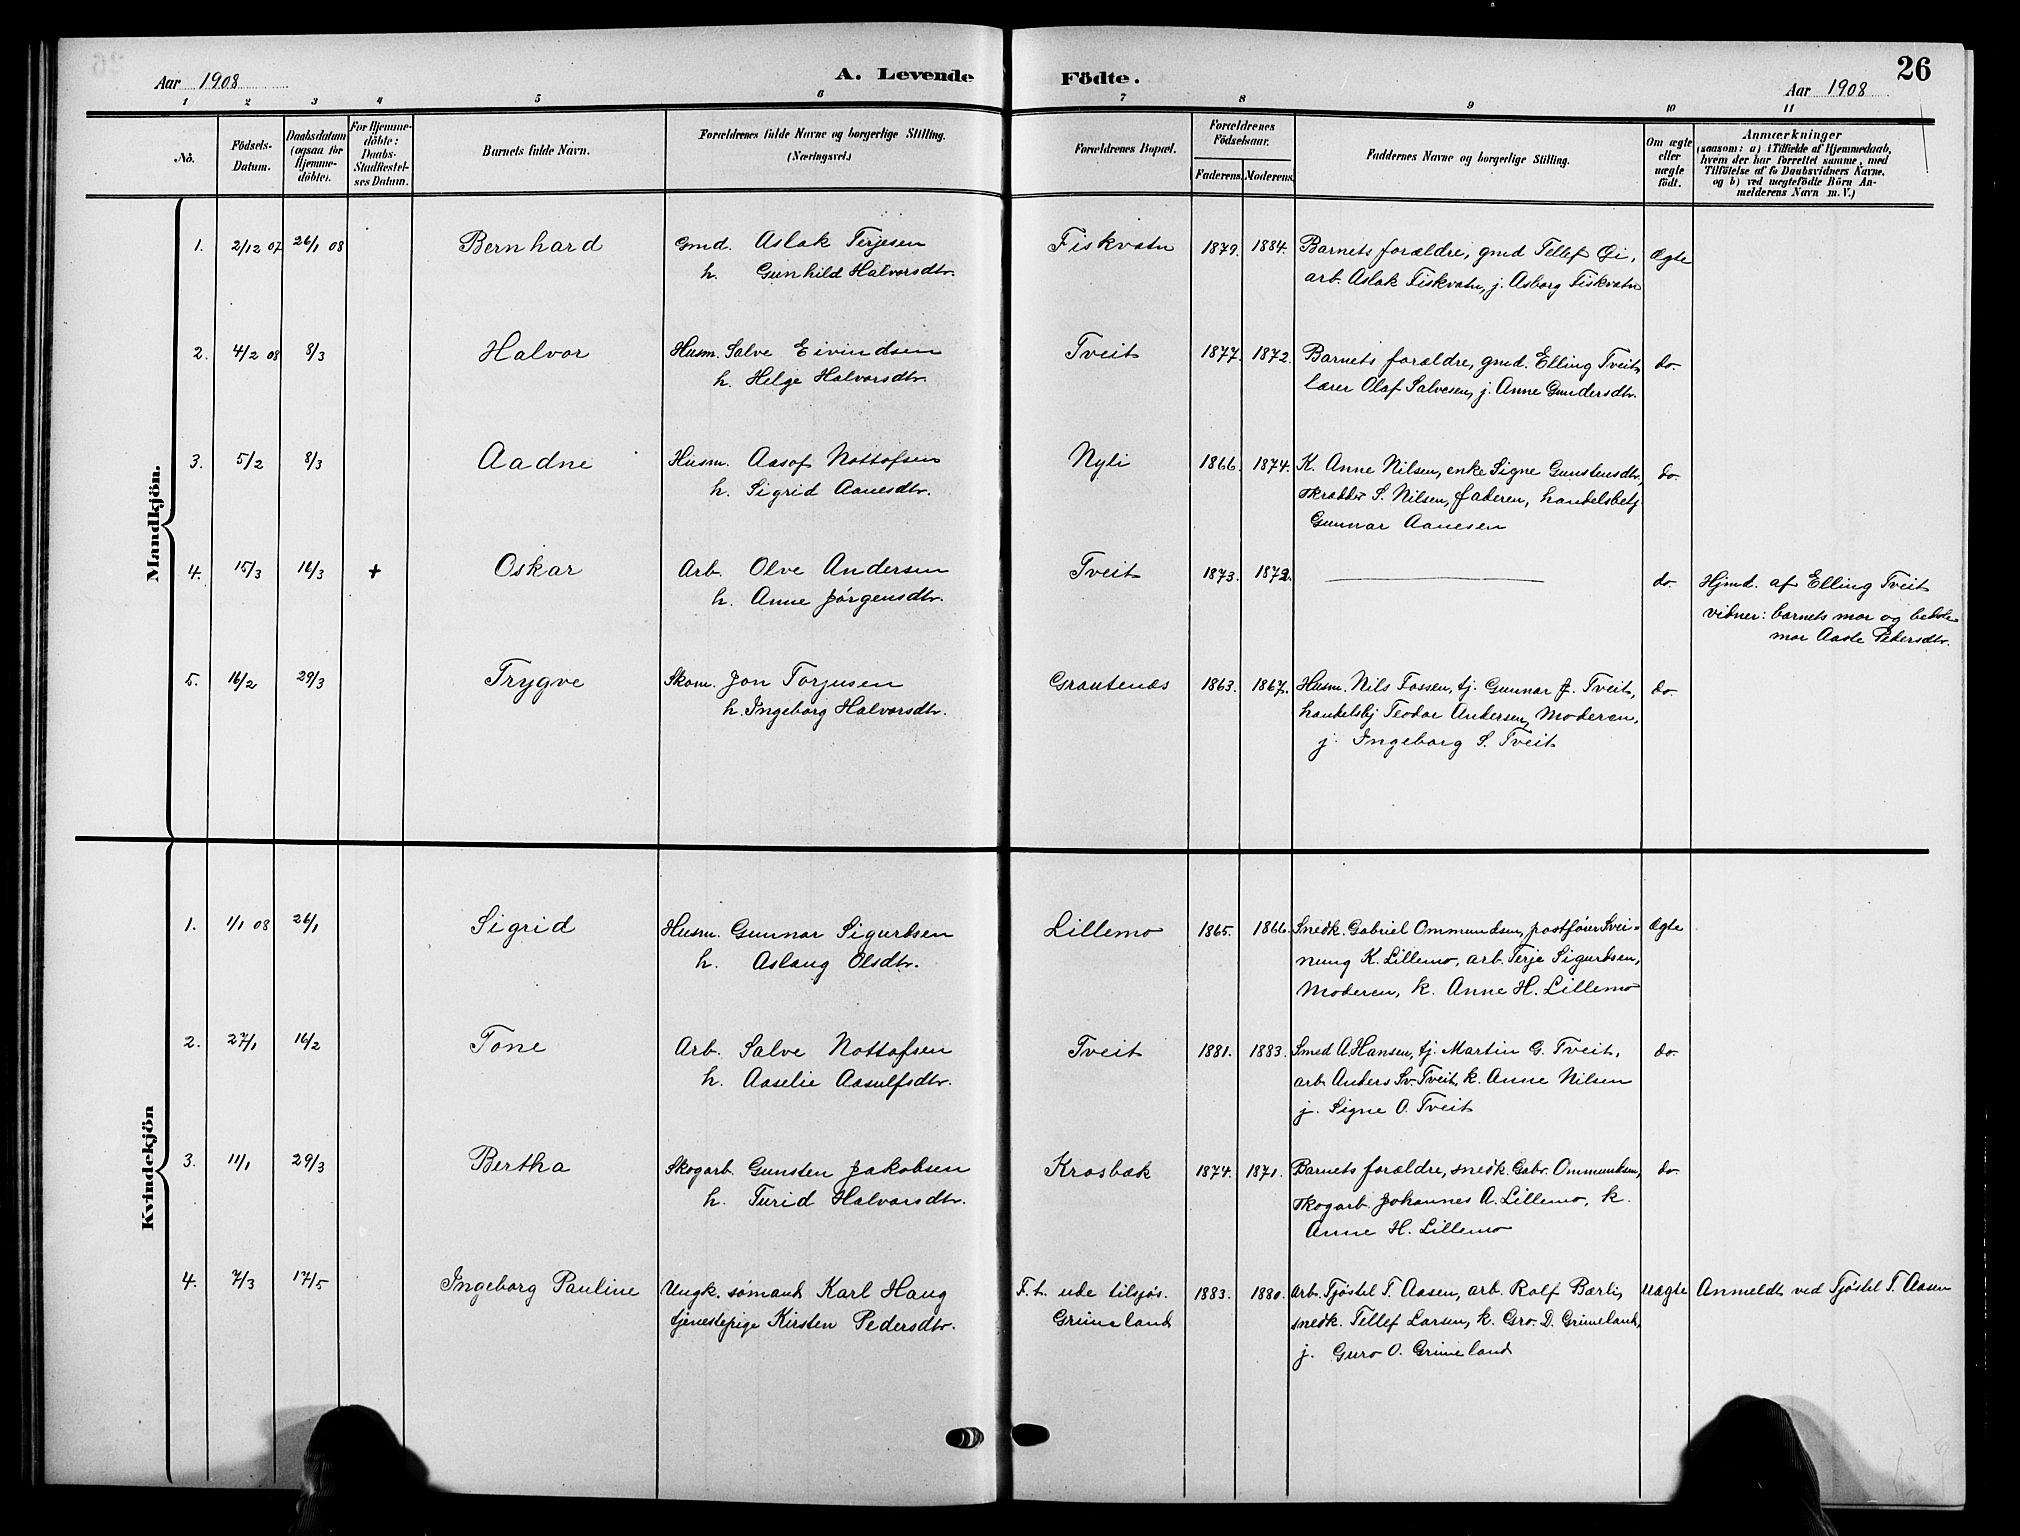 Aar 1908
A. Levende
Födte.
Aar 1908
26
1 2 3 4 5 6 7 8 9 10 11
No.
Födsels-
Datum.
Daabsdatum
(ogsaa for
Hjemme-
döbte).
For Hjemme-
döbte:
Daabs-
Stadfæstel-
ses Datum.
Barnets fulde Navn.
Forældrenes fulde Navne og borgerlige Stilling.
(Næringsvei.)
Forældrenes Bopæl.
Forældrenes
Födselsaar.
Faderens. Moderens.
Faddernes Navne og borgerlige Stilling.
Om ægte
eller
uægte
født.
Anmærkninger
(saasom: a) i Tilfælde af Hjemmedaab,
hvem der har forrettet samme, med
Tilføielse af to Daabsvidners Navne,
og b) ved uægtefödte Börn An-
melderens Navn m. V.)
Mandkjön.
1. 2/12 07 26/1 08 Bernhard Gmd. Aslak Terjesen Fiskvatn 1879. 1884. Barnets forældre, gmd Tellef Øi, Ægte
h. Gunhild Halvorsdtr. arb. Aslak Fiskvatn, j. Asborg Fiskvatn
2. 4/2 08 8/3 Halvor Husm. Salve Eivindsen Tveit 1877. 1872. Barnets forældre, gmd. Elling Tveit, do.
h. Helge Halvorsdtr. lærer Olaf Salvesen, j. Anne Gundersdtr.
3. 5/2 8/3 Aadne Husm. Aasof Nottofsen Nyli 1866. 1874. K. Anne Nilsen, enke Signe Gunstensdtr, do.
h. Sigrid Aanesdtr. skrædder S. Nilsen, faderen, handelsbetj.
Gunnar Aanesen
4. 15/3 16/3 + Oskar Arb. Olve Andersen Tveit 1873. 1872. do. Hjmd. af Elling Tveit
h. Anne Jörgensdtr. vidner: barnets mor og bedste
mor Aaste Pedersdtr.
5. 16/2 29/3 Trygve Skom. Jon Torjusen Grautenes 1863. 1867. Husm. Nils Fossen, tj. Gunnar J. Tveit, do.
h. Ingeborg Halvorsdtr. handelsbj Teodor Andersen, Moderen,
j. Ingeborg S. Tveit
Kvindekjön
1. 1/1 08 26/1 Sigrid Husm. Gunnar Sigurdsen Lillemo 1865. 1866. Snedk. Gabriel Ommundsen, postfører Svei- Ægte
h. Aslaug Olsdtr. nung K. Lillemo, arb. Terje Sigurdsen,
Moderen, k. Anne H. Lillemo
2. 27/1 16/2 Tone Arb. Salve Nottofsen Tveit 1881. 1883. Smed A. Hansen, tj. Martin G. Tveit, do.
h. Aaselie Aasulfsdtr. arb. Anders Sv. Tveit, k. Anne Nilsen
j. Signe O. Tveit
3. 11/1 29/3 Bertha Skogarb. Gunsten Jakobsen Krosbæk 1874. 1871. Barnets forældre, snedk. Gabr. Ommundsen, do.
h. Turid Halvorsdtr. Skogarb. Johannes A. Lillemo, k.
Anne H. Lillemo
4. 7/3 17/5 Ingeborg Pauline Ungk. sømand Karl Haug F. t. ude tilsjøs. 1883. 1880. Arb. Tjøstel T. Aasen, arb. Rolf Bærli, Uægte Anmeldt ved Tjøstel T. Aasen
tjenestepige Kirsten Pedersdtr. Grimeland snedk. Tellef Larsen, k. Gro. D. Grimeland,
j. Guro O. Grimeland